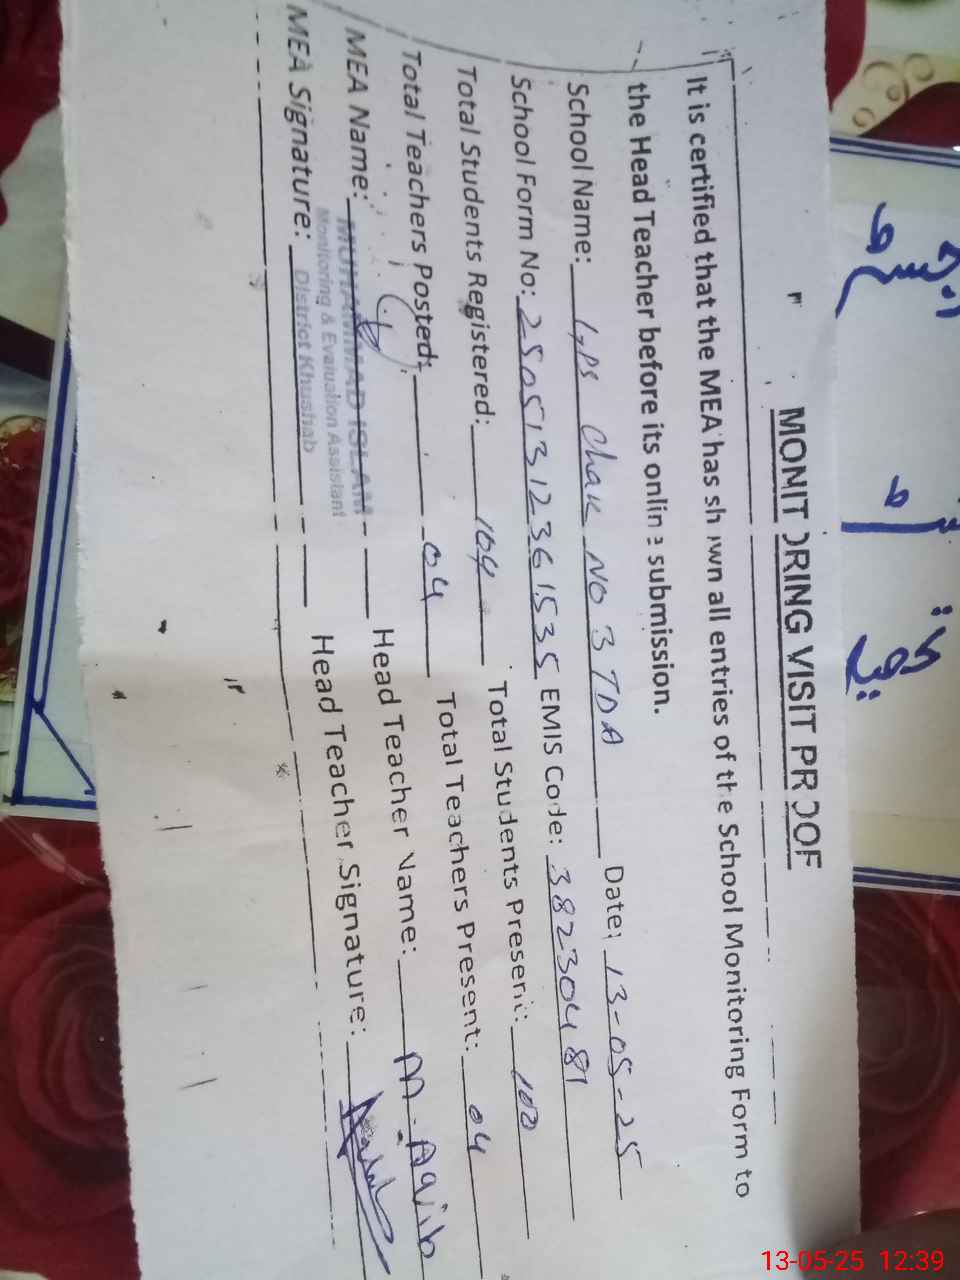 MONITORING VISIT PROOF
It is certified that the MEA has shown all entries of the School Monitoring Form to
the Head Teacher before its online submission.
School Name: GPS Chak NO 3 TDA Date: 13-05-25
School Form No: 25051312361535 EMIS Code: 38230481
Total Students Registered: 104 Total Students Present: 102
Total Teachers Posted: 04 Total Teachers Present: 04
MEA Name: MUHAMMAD ISLAM Head Teacher Name: M. Aqib
Monitoring & Evaluation Assistant
MEA Signature: District Khushab Head Teacher Signature:
13-05-25 12:39